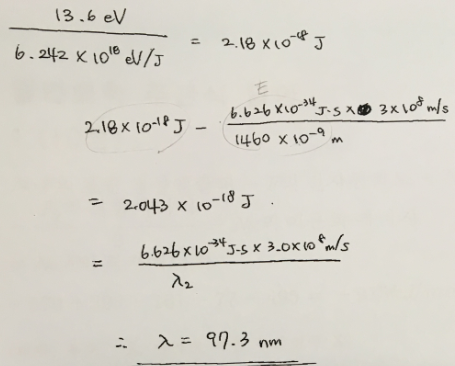 13.6 eV / 6.242 × 10¹⁸ eV/J = 2.18 × 10⁻¹⁸ J
E
2.18 × 10⁻¹⁸ J − 6.626 × 10⁻³⁴ J·s × 3 × 10⁸ m/s / 1460 × 10⁻⁹ m
= 2.043 × 10⁻¹⁸ J .
= 6.626 × 10⁻³⁴ J·s × 3.0 × 10⁸ m/s / λ₂
∴ λ = 97.3 nm